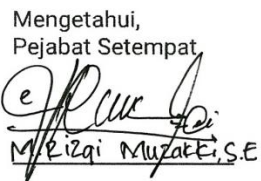 Mengetahui,
Pejabat Setempat
M. Rizqi Muzakki, S.E